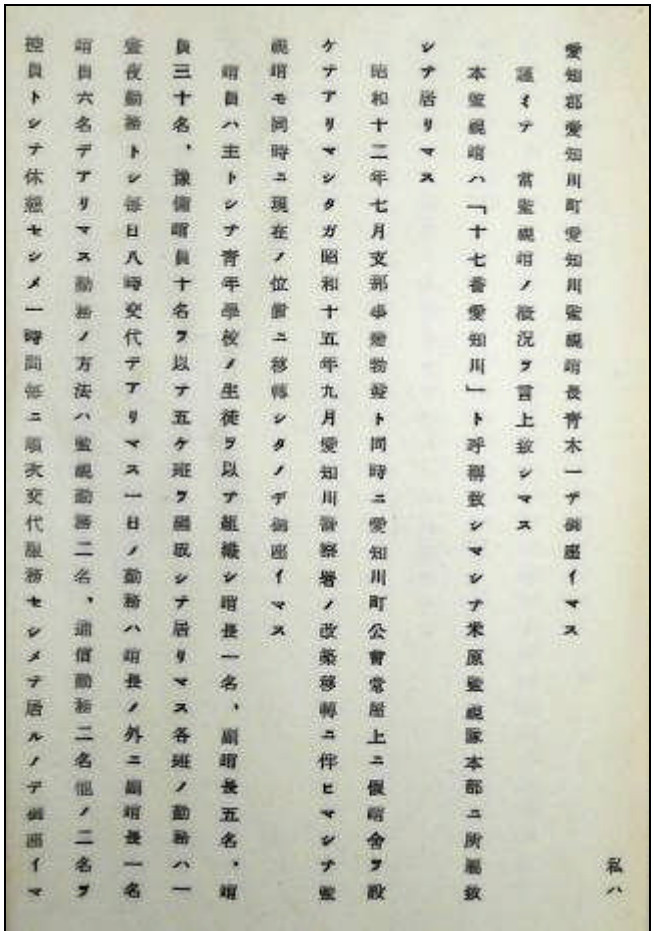 私ハ
愛知郡愛知川町愛知川監視哨長青木一デ御座イマス
謹ミテ　當監視哨ノ概況ヲ言上致シマス
本監視哨ハ「十七番愛知川」ト呼稱致シマシテ米原監視隊本部ニ所屬致
シテ居リマス
昭和十二年七月支那事變勃發ト同時ニ愛知川町公會堂屋上ニ假哨舍ヲ設
ケテアリマシタガ昭和十五年九月愛知川警察署ノ改築移轉ニ伴ヒマシテ監
視哨モ同時ニ現在ノ位置ニ移轉シタノデ御座イマス
哨員ハ主トシテ青年學校ノ生徒ヲ以テ組織シ哨長一名、副哨長五名、哨
員三十名、豫備哨員十名ヲ以テ五ケ班ヲ編成シテ居リマス各班ノ勤務ハ一
晝夜勤務トシ毎日八時交代デアリマス一日ノ勤務ハ哨長ノ外ニ副哨長一名
哨員六名デアリマス勤務ノ方法ハ監視勤務二名、通信勤務二名他ノ二名ヲ
控員トシテ休憩セシメ一時間毎ニ順次交代服務セシメテ居ルノデ御座イマ